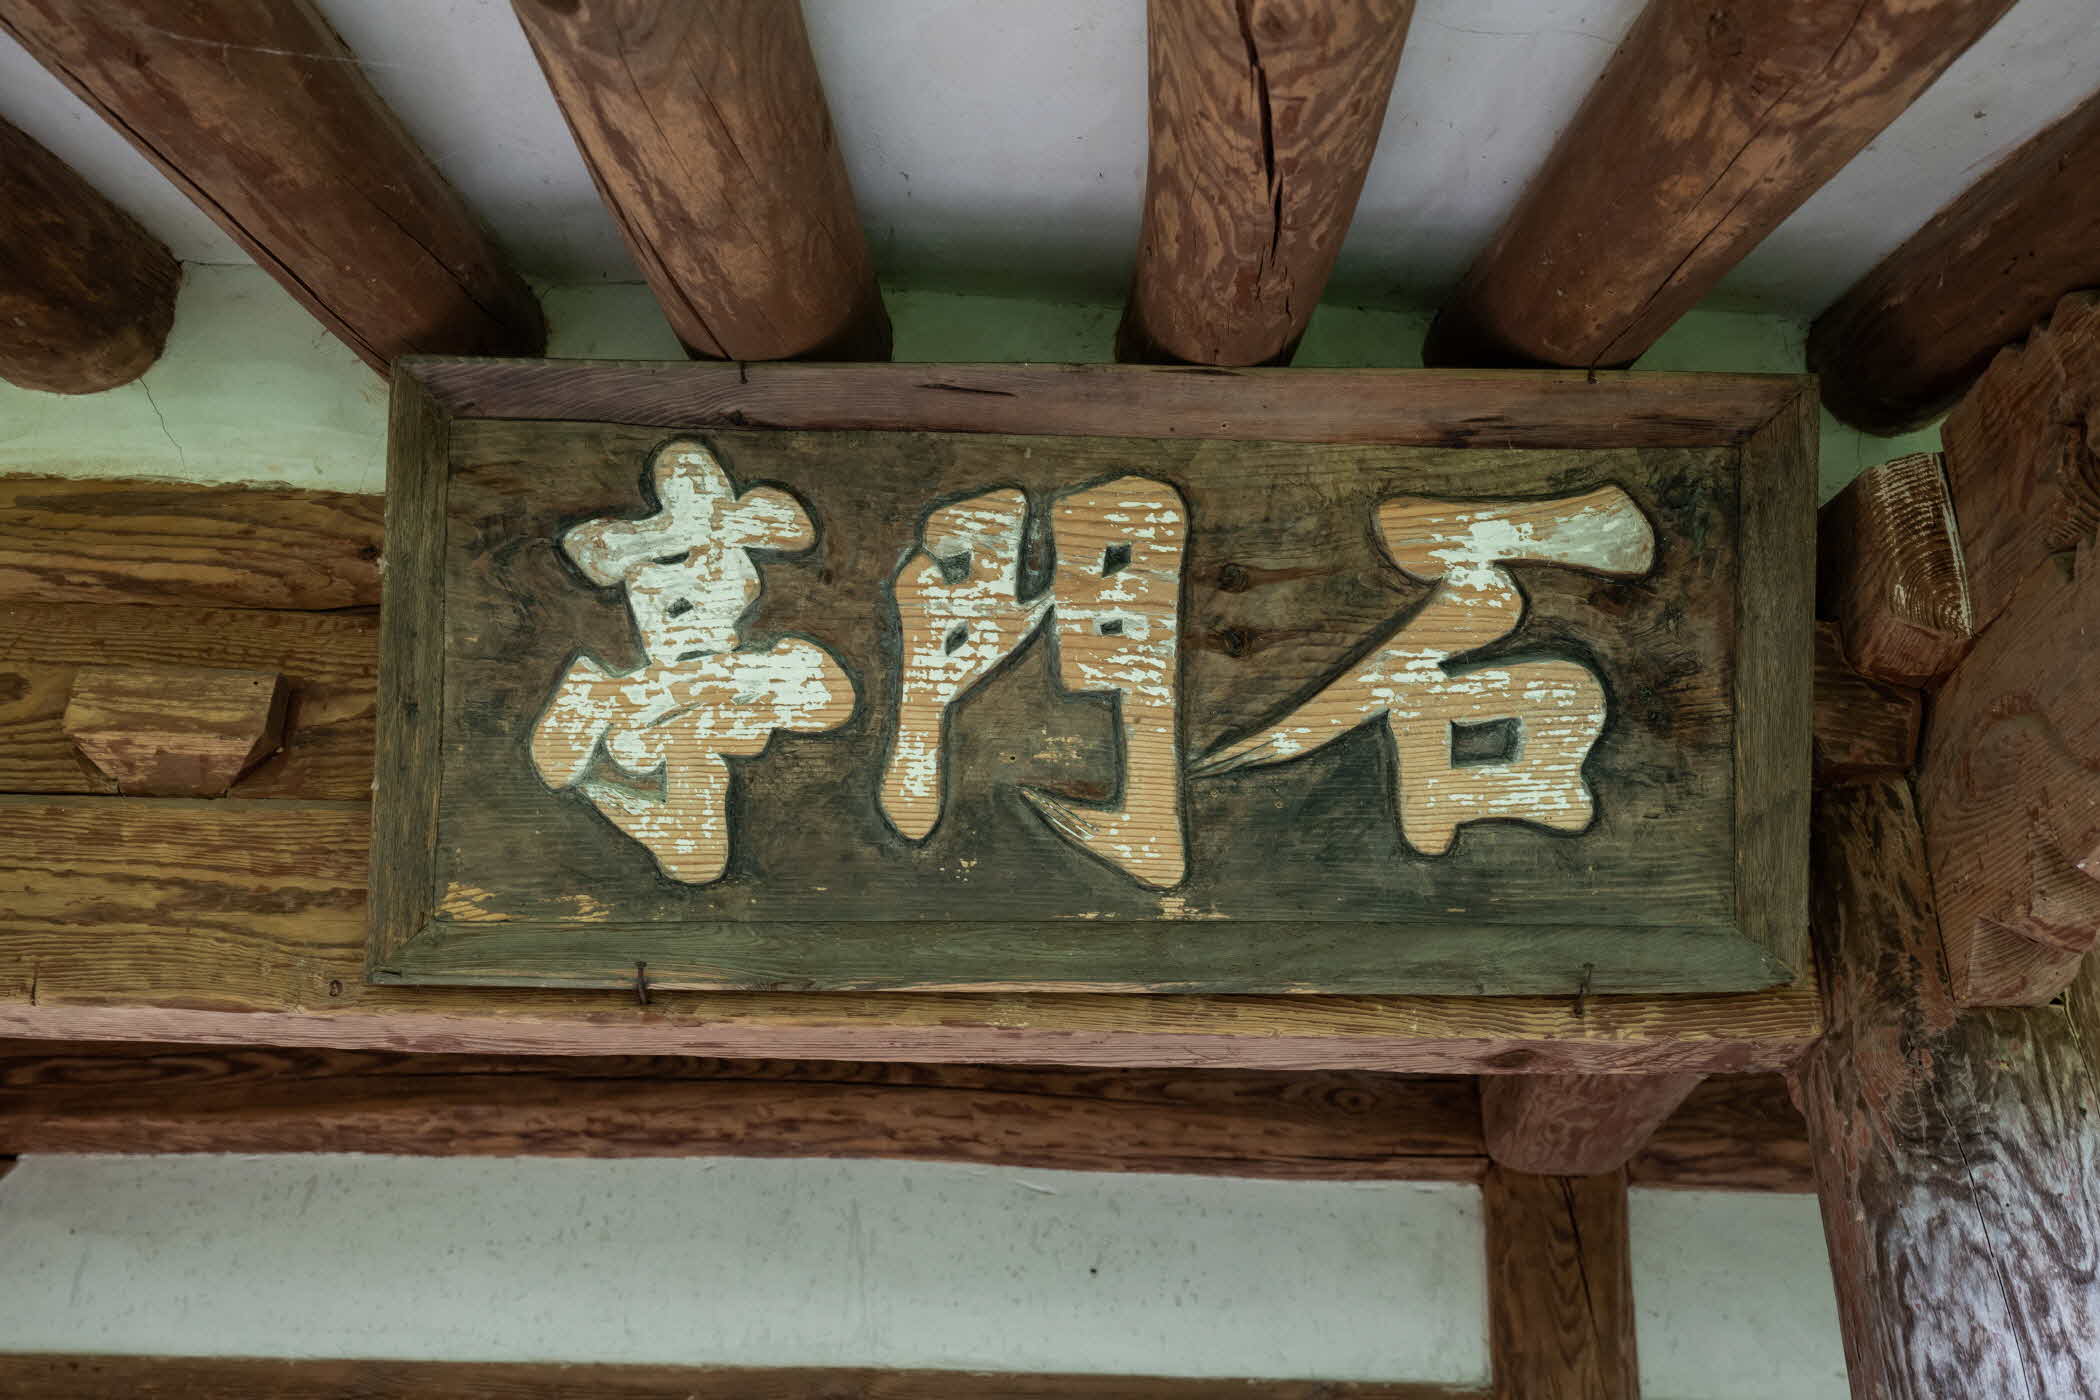 石門亭